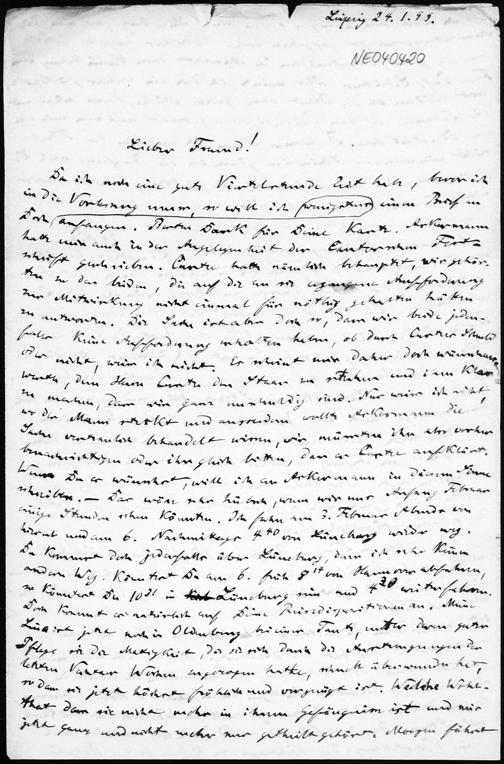 Leipzig 24.1.99.
NE040420
Lieber Freund!
Da ich noch eine gute Viertelstunde Zeit habe, bevor ich
in die Vorlesung muss, so will ich wenigstens einen Brief an
Dich anfangen. Besten Dank für Deine Karte. Ackermann
hatte mir auch in der Angelegenheit der Cantorschen Fest-
schrift geschrieben. Curtze hatte nämlich behauptet, wir gehör-
ten zu den beiden, die auf die an sie ergangene Aufforderung
zur Mitwirkung nicht einmal für nöthig gehalten hätten
zu antworten. Die Sache ist aber doch so, dass wir beide jeden-
falls keine Aufforderung erhalten haben, ob durch Curtzes Schuld
oder nicht, weiss ich nicht. Es scheint mir daher doch wünschens-
werth, dem Herrn Curtze den Staar zu stechen und ihm klar
zu machen, dass wir ganz unschuldig sind. Nur weiss ich nicht,
wo der Mann steckt und ausserdem wollte Ackermann die
Sache vertraulich behandelt wissen, wir müssten ihn also vorher
benachrichtigen oder ihn gleich bitten, dass er Curtze aufklärt.
Wenn Du es wünschest, will ich an Ackermann in diesem Sinne
schreiben. – Das wäre sehr hübsch, wenn wir uns Anfang Februar
einige Stunden sehen könnten. Ich fahre am 3. Februar Abends von
hier und am 6. Nachmittags 4 40 von Lüneburg wieder weg.
Du kommst doch jedenfalls über Lüneburg, denn ich sehe kaum
andern Weg. Könntest Du am 6. früh 8 14 von Hannover abfahren,
so könntest Du 10 31 in Lüneburg sein und 4 20 weiterfahren.
Doch kommt es natürlich auf Deine Reisedispositionen an. Meine
Lina ist jetzt noch in Oldenburg bei einer Tante, unter deren guter
Pflege sie die Mattigkeit, die sie sich durch die Anstrengungen der
letzten Wochen zugezogen hatte, schnell überwunden hat,
so dass sie jetzt höchst fröhlich und vergnügt ist. Welche Wohl-
that dass sie nicht mehr in ihrem Gefängniss ist und mir
jetzt ganz und nicht mehr nur getheilt gehört. Morgen fährt